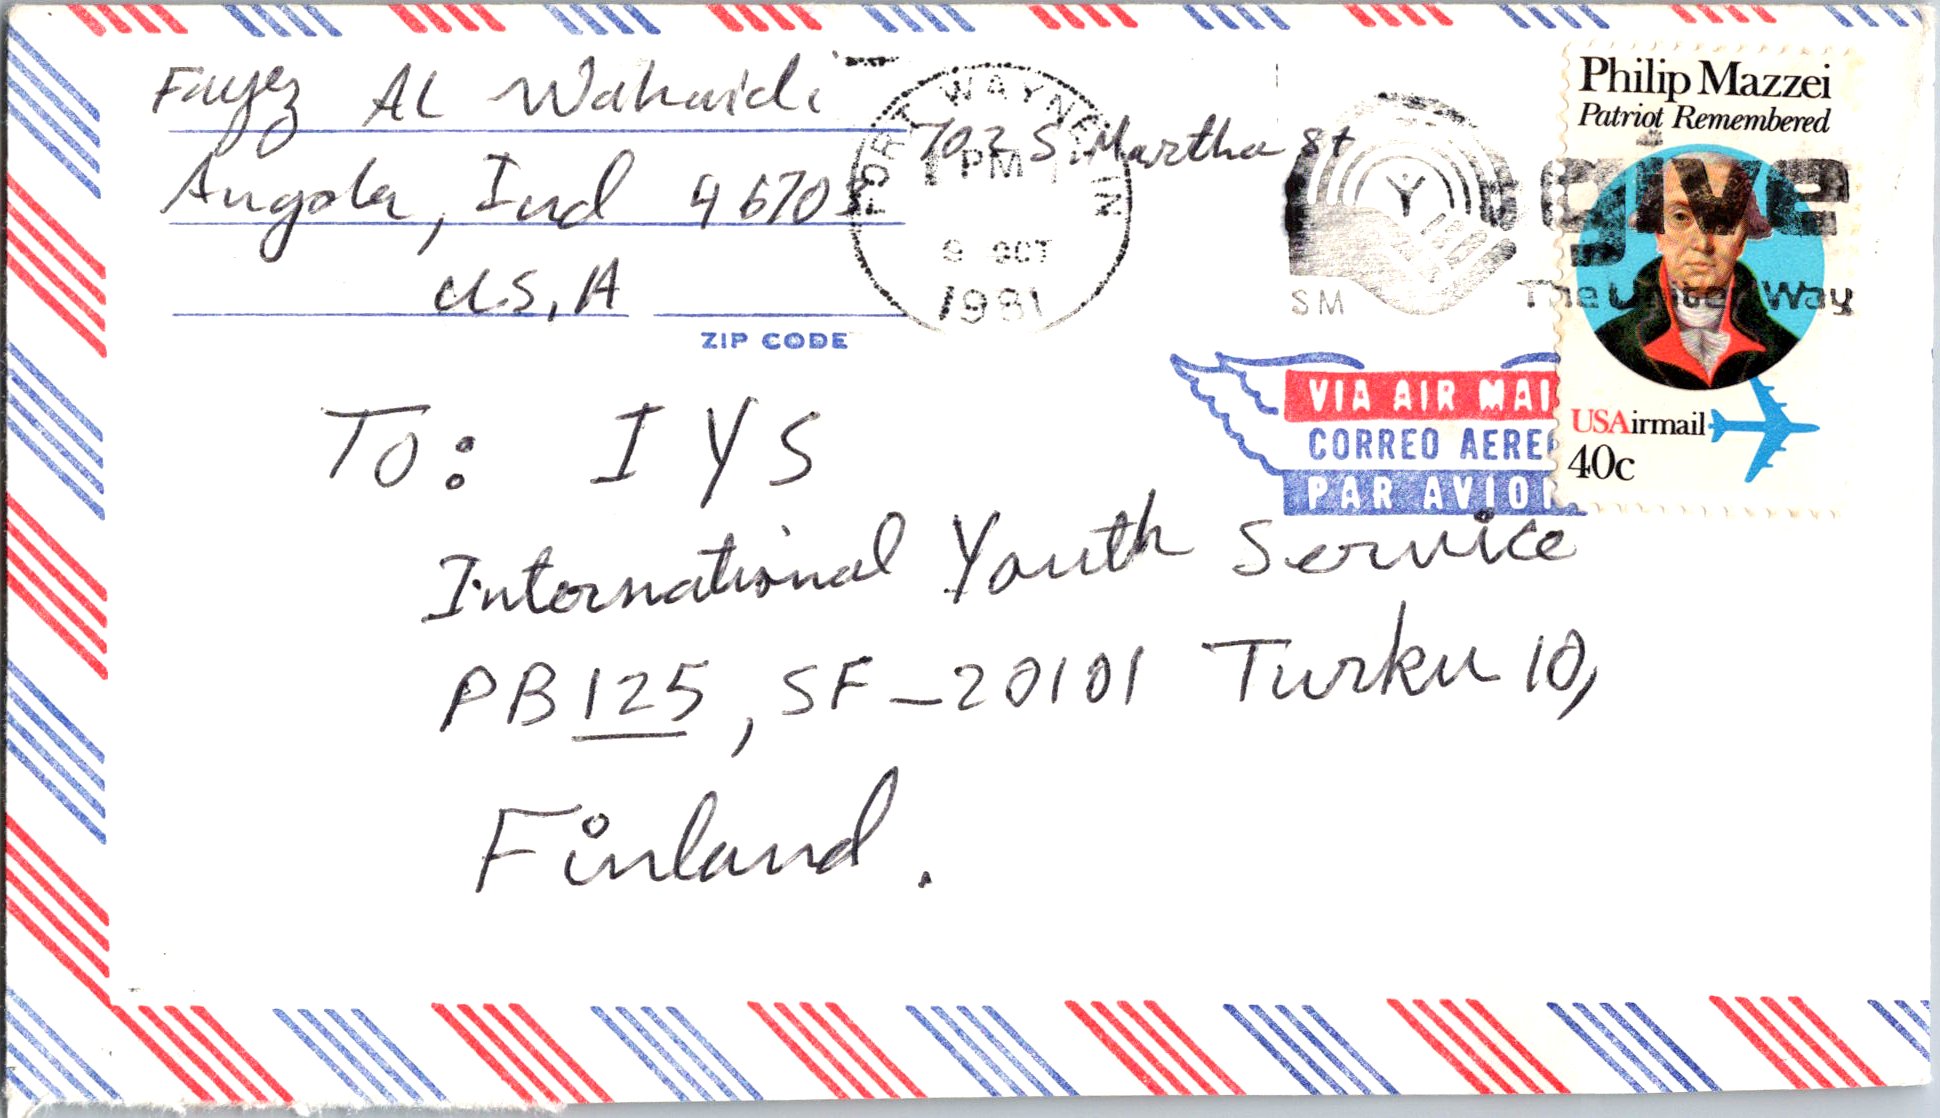 Fayez AL Wahaidi
702 S. Martha St
Angola, Ind 46703
U.S, A
ZIP CODE
FORT WAYNE, IN
PM
9 OCT
1981
SM
give
The United Way
Philip Mazzei
Patriot Remembered
USAirmail
40c
VIA AIR MAI
CORREO AERE
PAR AVION
To: I Y S
International Youth Service
PB 125, SF-20101 Turku 10,
Finland.